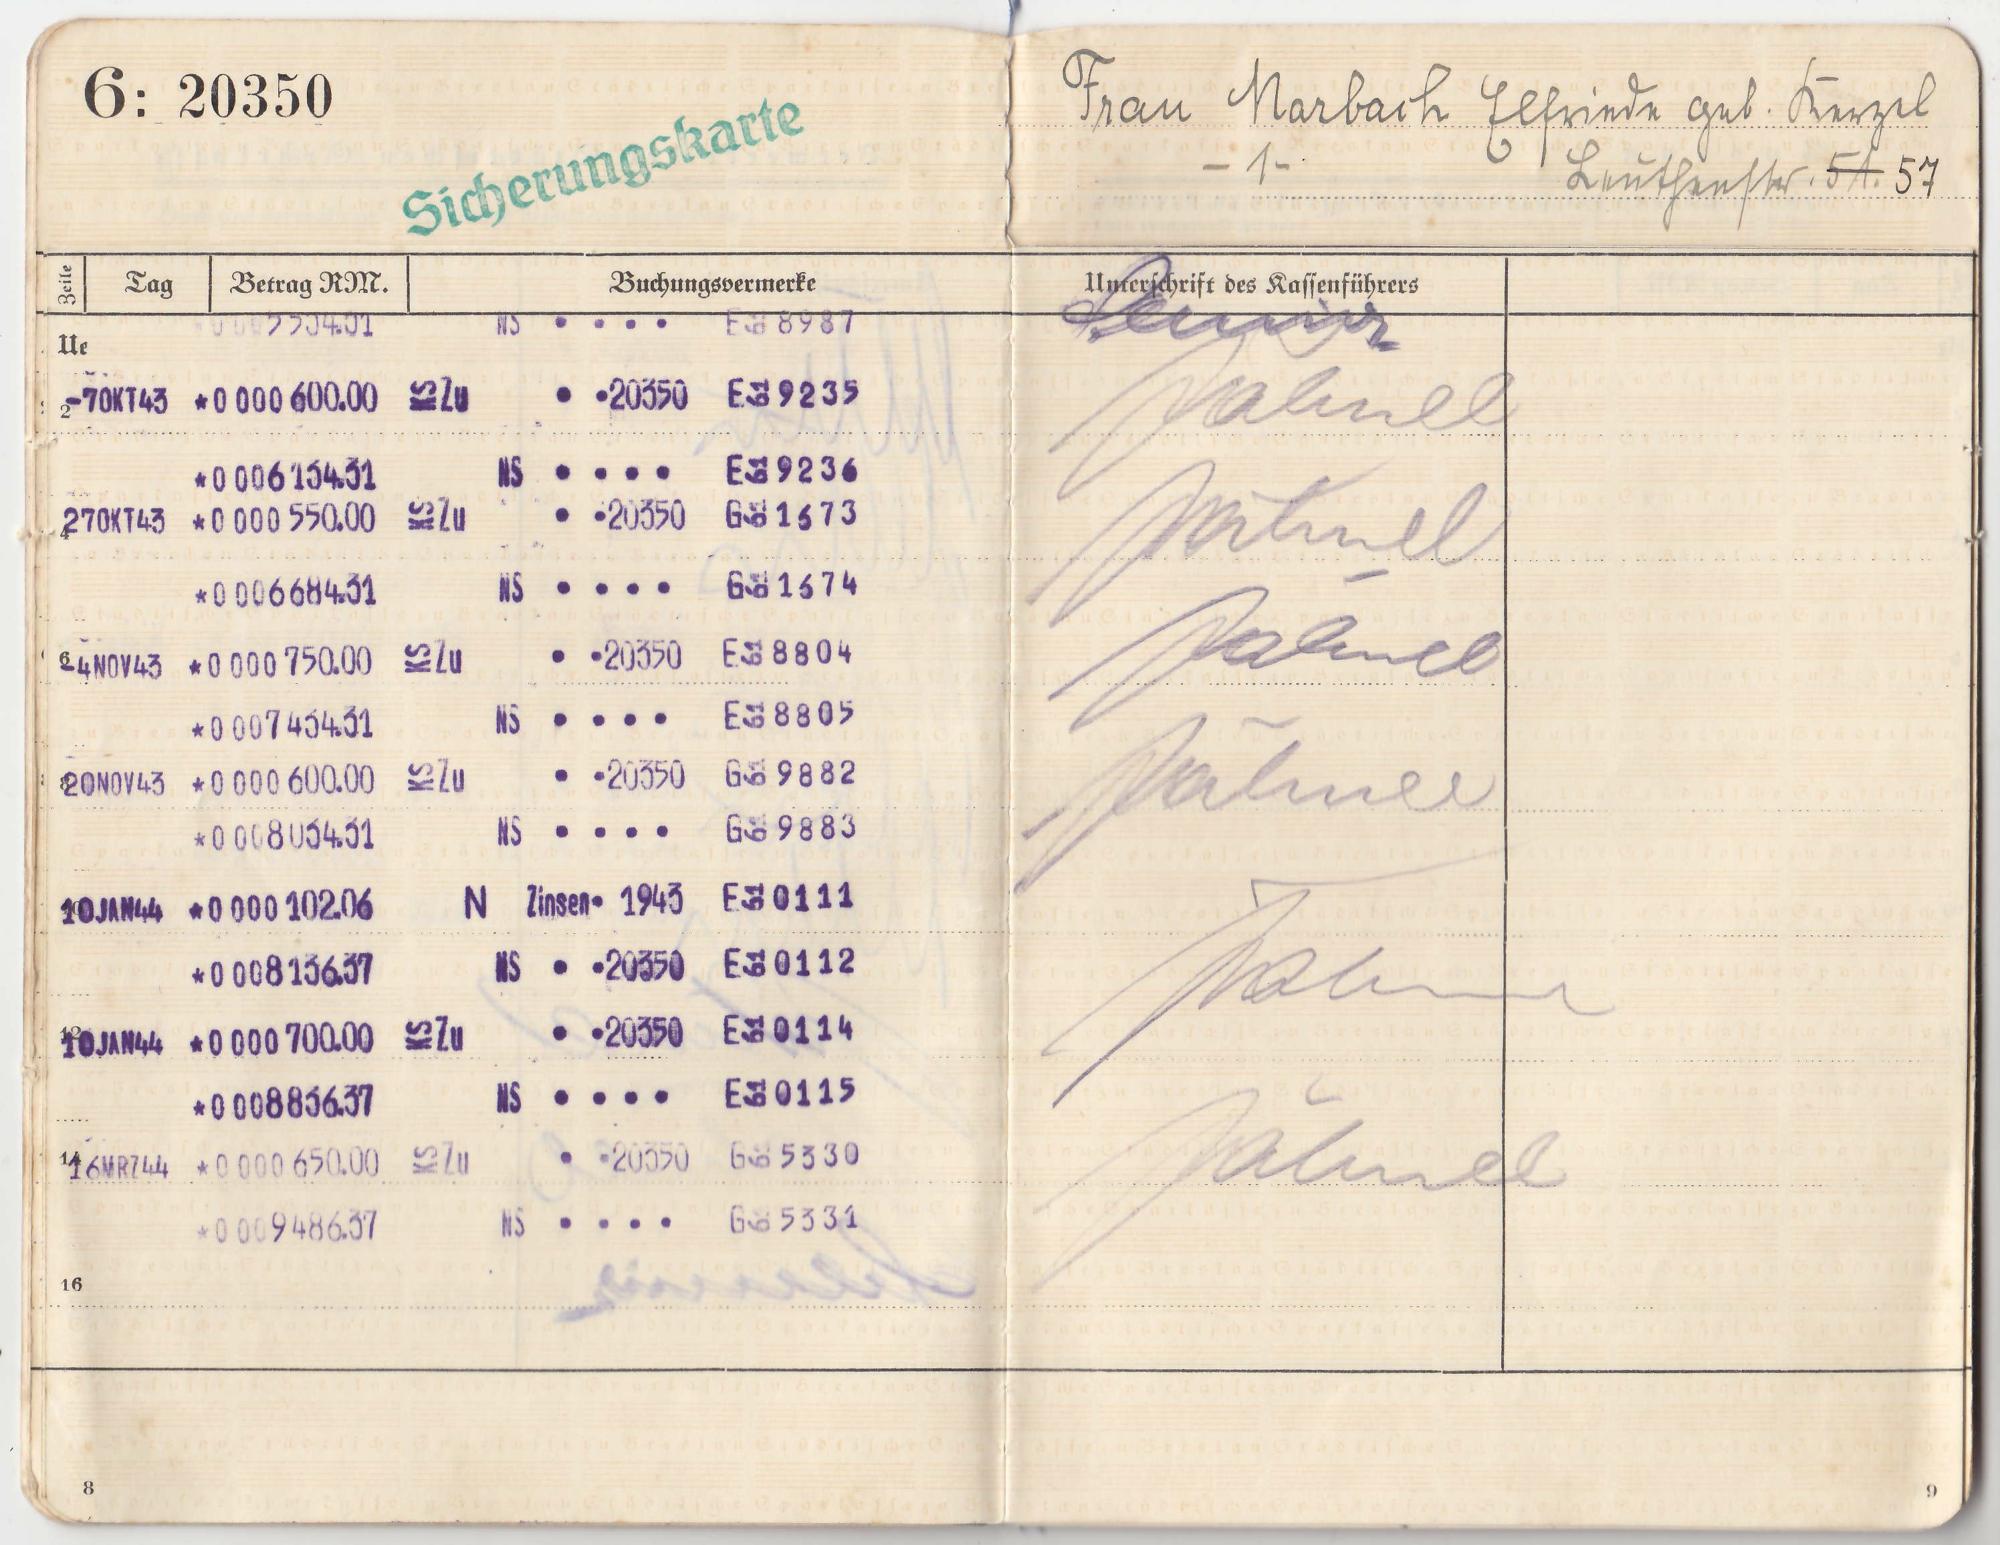 6: 20350
Sicherungskarte
Frau Marbach Elfriede geb. Kerzel
- 1 -
Leuthenstr. 51. 57
Zeile Tag Betrag RM. Buchungsvermerke Unterschrift des Kassenführers
5534.31 NS • • • • E61 8987
Ue
2 -7OKT43 *0 000 600.00 KS Zu • •20350 E61 9235
*0 006 134.31 NS • • • • E61 9236
4 27OKT43 *0 000 550.00 KS Zu • •20350 G61 1673
*0 006 684.31 NS • • • • G61 1674
6 -4NOV43 *0 000 750.00 KS Zu • •20350 E61 8804
*0 007 434.31 NS • • • • E61 8805
8 20NOV43 *0 000 600.00 KS Zu • •20350 G61 9882
*0 008 034.31 NS • • • • G61 9883
10JAN44 *0 000 102.06 N Zinsen• 1943 E61 0111
*0 008 136.37 NS • •20350 E61 0112
12 10JAN44 *0 000 700.00 KS Zu • •20350 E61 0114
*0 008 836.37 NS • • • • E61 0115
14 16MRZ44 *0 000 650.00 KS Zu • •20350 G61 5330
*0 009 486.37 NS • • • • G61 5331
16
8
9